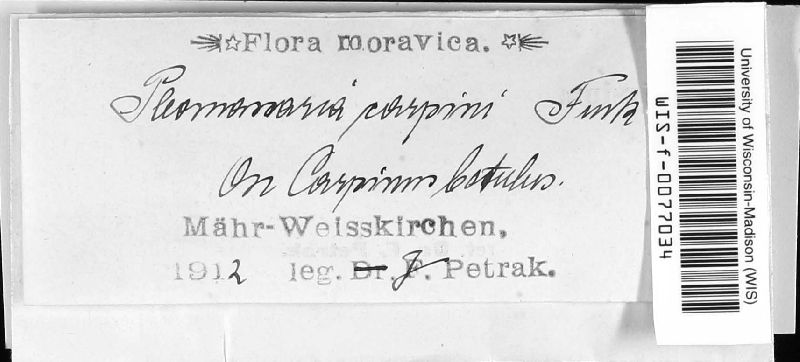 Flora moravica.
Pleomassaria carpini Fuck
On Carpinus betulus.
Mähr-Weisskirchen,
1912 leg. Dr. F. Petrak.
University of Wisconsin-Madison (WIS)
WIS-f-0077034